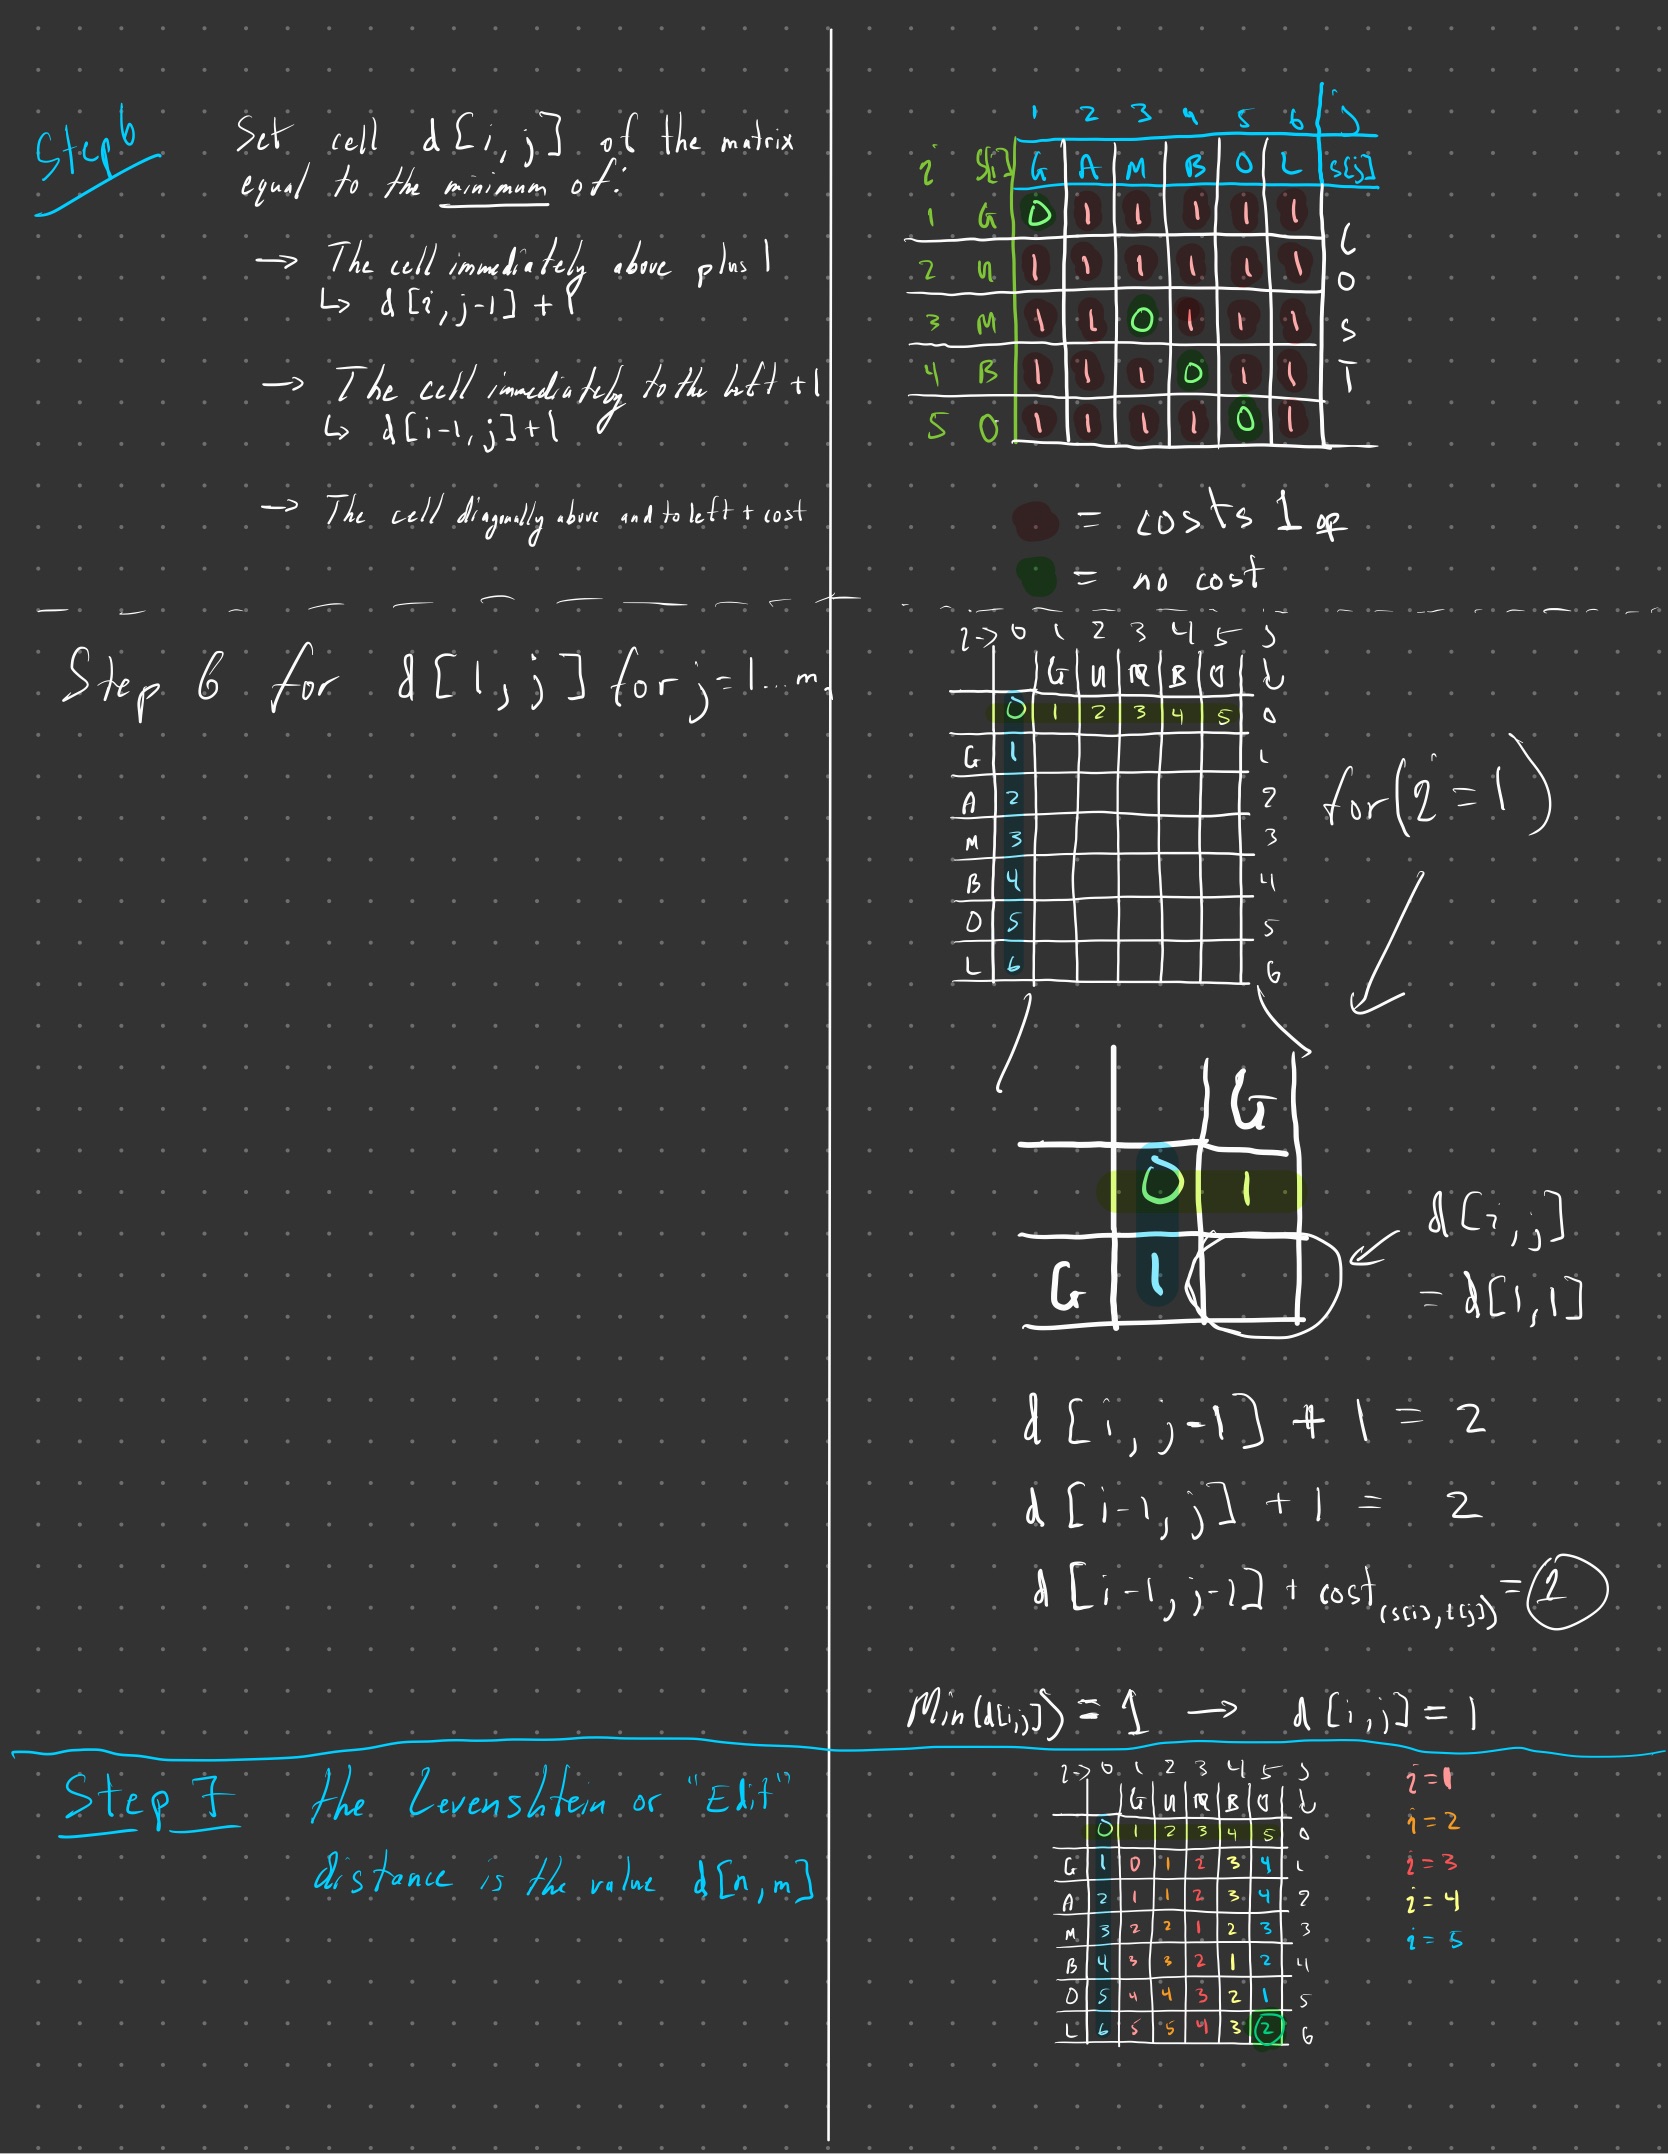 Step 6
Set cell d[i, j] of the matrix
equal to the minimum of:
→ The cell immediately above plus 1
↳ d[i, j-1] + 1
→ The cell immediately to the left +1
↳ d[i-1, j]+1
→ The cell diagonally above and to left + cost
1 2 3 4 5 6 j
i s[i] G A M B O L s[j]
1 G 0 1 1 1 1 1
2 U 1 1 1 1 1 1
3 M 1 1 0 1 1 1
4 B 1 1 1 0 1 1
5 O 1 1 1 1 0 1
COST
= costs 1 op
= no cost
Step 6 for d[1, j] for j=1...m.
i→ 0 1 2 3 4 5 j
G U M B O ↓
0 1 2 3 4 5 0
G 1 1
A 2 2
M 3 3
B 4 4
O 5 5
L 6 6
for(i=1)
G
0 1
G 1
d[i, j]
= d[1, 1]
d[i, j-1] + 1 = 2
d[i-1, j] + 1 = 2
d[i-1, j-1] + cost(s[i], t[j]) = 1
Min(d[i,j]) = 1 → d[i,j] = 1
Step 7 the Levenshtein or "Edit"
distance is the value d[n, m]
i→ 0 1 2 3 4 5 j
G U M B O ↓
0 1 2 3 4 5 0
G 1 0 1 2 3 4 1
A 2 1 1 2 3 4 2
M 3 2 2 1 2 3 3
B 4 3 3 2 1 2 4
O 5 4 4 3 2 1 5
L 6 5 5 4 3 2 6
i=1
i=2
i=3
i=4
i=5